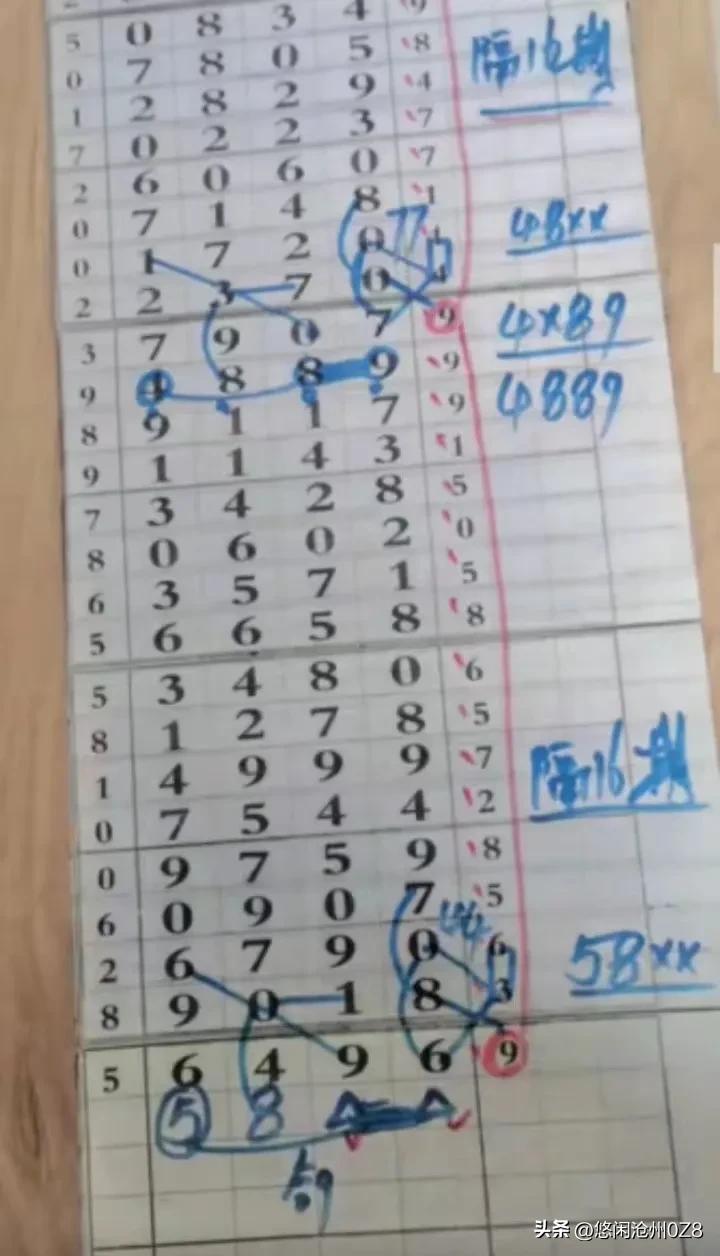 5 0 8 3 4 9
0 7 8 0 5 8 隔16期
1 2 8 2 9 4
7 0 2 2 3 7
2 6 0 6 0 7
0 7 1 4 8 1
0 1 7 2 0 77 4 48××
2 2 3 7 0 4
3 7 9 0 7 9 4×89
9 4 8 8 9 9 4889
8 9 1 1 7 9
9 1 1 4 3 1
7 3 4 2 8 5
8 0 6 0 2 0
6 3 5 7 1 5
5 6 6 5 8 8
5 3 4 8 0 6
8 1 2 7 8 5
1 4 9 9 9 7 隔16期
0 7 5 4 4 2
0 9 7 5 9 8
6 0 9 0 7 5
2 6 7 9 0 44 6 58××
8 9 0 1 8 3
5 6 4 9 6 9
5 8
头条 @悠闲沧州0Z8